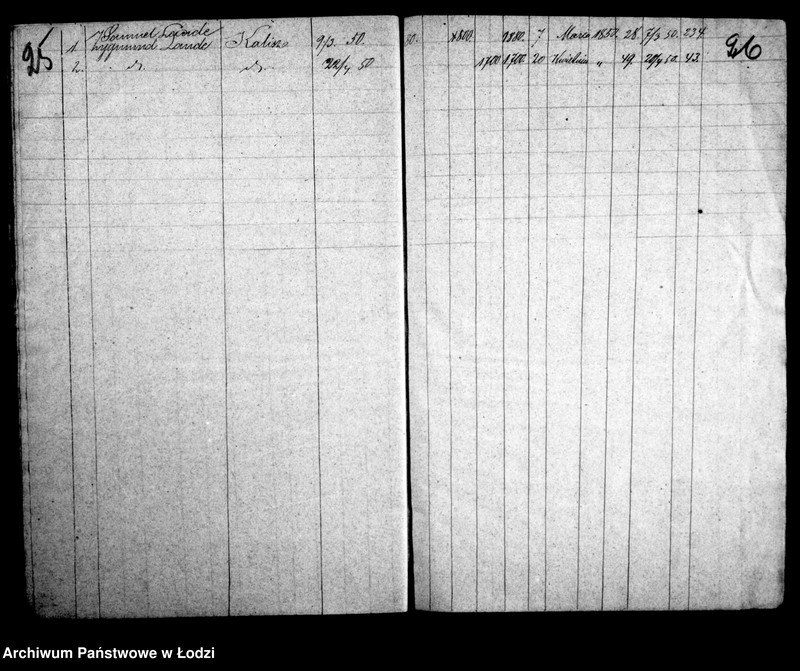 25
Samuel Lande
1. Zygmund Lande Kalisz 9/3. 50. 50. 1800. 1880. 7 Marca 1850. 28. 7/3 50. 234.
2. d. d. 22/4 50 1700 1700. 20 Kwietnia " 49. 20/4 50. 43.
26
Archiwum Państwowe w Łodzi